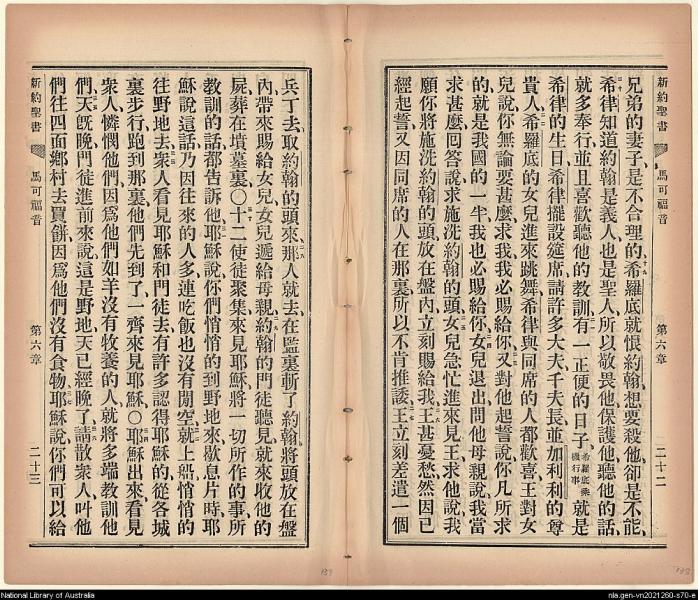 新約聖書　馬可福音　第六章　二十二
兄弟的妻子是不合理的希羅底就恨約翰想要殺他卻是不能
希律知道約翰是義人也是聖人所以敬畏他保護他聽他的話
就多奉行並且喜歡聽他的教訓有一正便的日子希羅底乘機行事就是
希律的生日希律擺設筵席請許多大夫千夫長並加利利的尊
貴人希羅底的女兒進來跳舞希律與同席的人都歡喜王對女
兒說你無論要甚麼求我我必賜給你又對他起誓說你凡所求
的就是我國的一半我也必賜給你女兒退出問他母親說我當
求甚麼回答說求施洗約翰的頭女兒急忙進來見王求他說我
願你將施洗約翰的頭放在盤內立刻賜給我王甚憂愁然因已
經起誓又因同席的人在那裏所以不肯推諉王立刻差遣一個
兵丁去取約翰的頭來那人就去在監裏斬了約翰將頭放在盤
內帶來賜給女兒女兒遞給母親約翰的門徒聽見就來收他的
屍葬在墳墓裏〇十二使徒聚集來見耶穌將一切所作的事所
教訓的話都告訴他耶穌說你們悄悄的到野地來歇息片時耶
穌說這話乃因往來的人多連吃飯也沒有閒空就上船悄悄的
往野地去衆人看見耶穌和門徒去有許多認得耶穌的從各城
裏步行跑到那裏他們先到了一齊來見耶穌〇耶穌出來看見
衆人憐憫他們因爲他們如羊沒有牧養的人就將多端教訓他
們天旣晚門徒進前來說這是野地天已經晚了請散衆人叫他
們往四面鄉村去買餅因爲他們沒有食物耶穌說你們可以給
新約聖書　馬可福音　第六章　二十三
National Library of Australia
nla.gen-vn2021260-s70-e